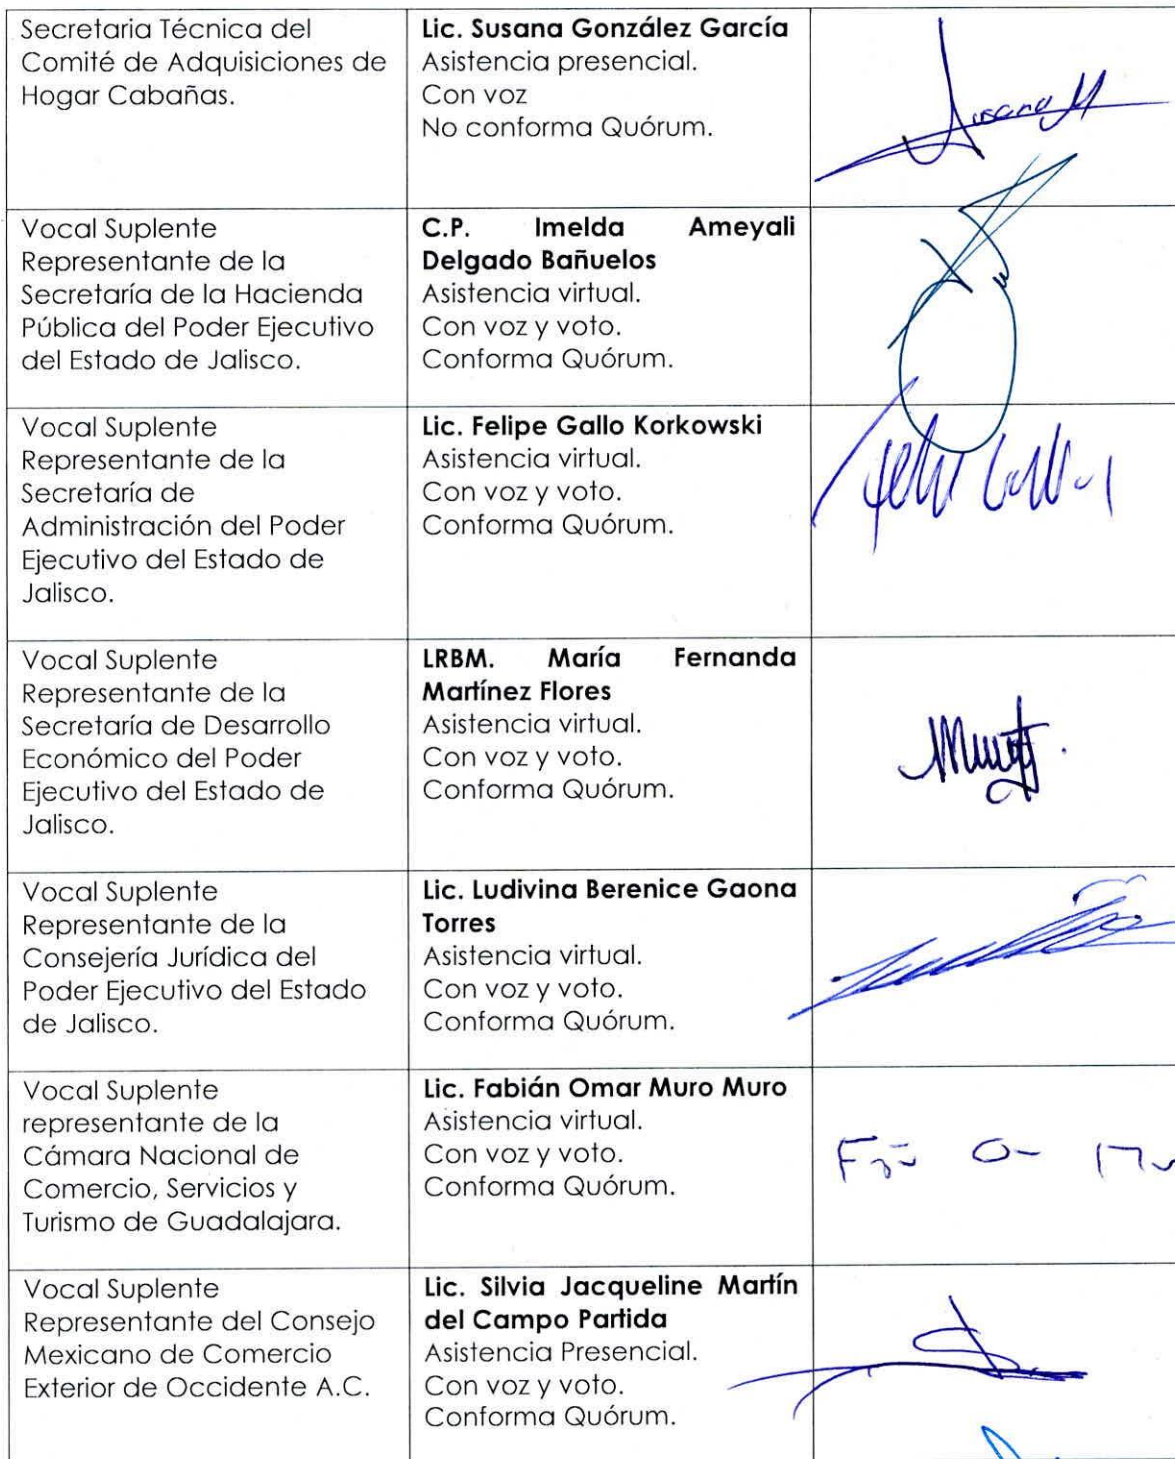 Secretaria Técnica del
Comité de Adquisiciones de
Hogar Cabañas.
Lic. Susana González García
Asistencia presencial.
Con voz
No conforma Quórum.
Vocal Suplente
Representante de la
Secretaría de la Hacienda
Pública del Poder Ejecutivo
del Estado de Jalisco.
C.P. Imelda Ameyali
Delgado Bañuelos
Asistencia virtual.
Con voz y voto.
Conforma Quórum.
Vocal Suplente
Representante de la
Secretaría de
Administración del Poder
Ejecutivo del Estado de
Jalisco.
Lic. Felipe Gallo Korkowski
Asistencia virtual.
Con voz y voto.
Conforma Quórum.
Vocal Suplente
Representante de la
Secretaría de Desarrollo
Económico del Poder
Ejecutivo del Estado de
Jalisco.
LRBM. María Fernanda
Martínez Flores
Asistencia virtual.
Con voz y voto.
Conforma Quórum.
Vocal Suplente
Representante de la
Consejería Jurídica del
Poder Ejecutivo del Estado
de Jalisco.
Lic. Ludivina Berenice Gaona
Torres
Asistencia virtual.
Con voz y voto.
Conforma Quórum.
Vocal Suplente
representante de la
Cámara Nacional de
Comercio, Servicios y
Turismo de Guadalajara.
Lic. Fabián Omar Muro Muro
Asistencia virtual.
Con voz y voto.
Conforma Quórum.
Vocal Suplente
Representante del Consejo
Mexicano de Comercio
Exterior de Occidente A.C.
Lic. Silvia Jacqueline Martín
del Campo Partida
Asistencia Presencial.
Con voz y voto.
Conforma Quórum.